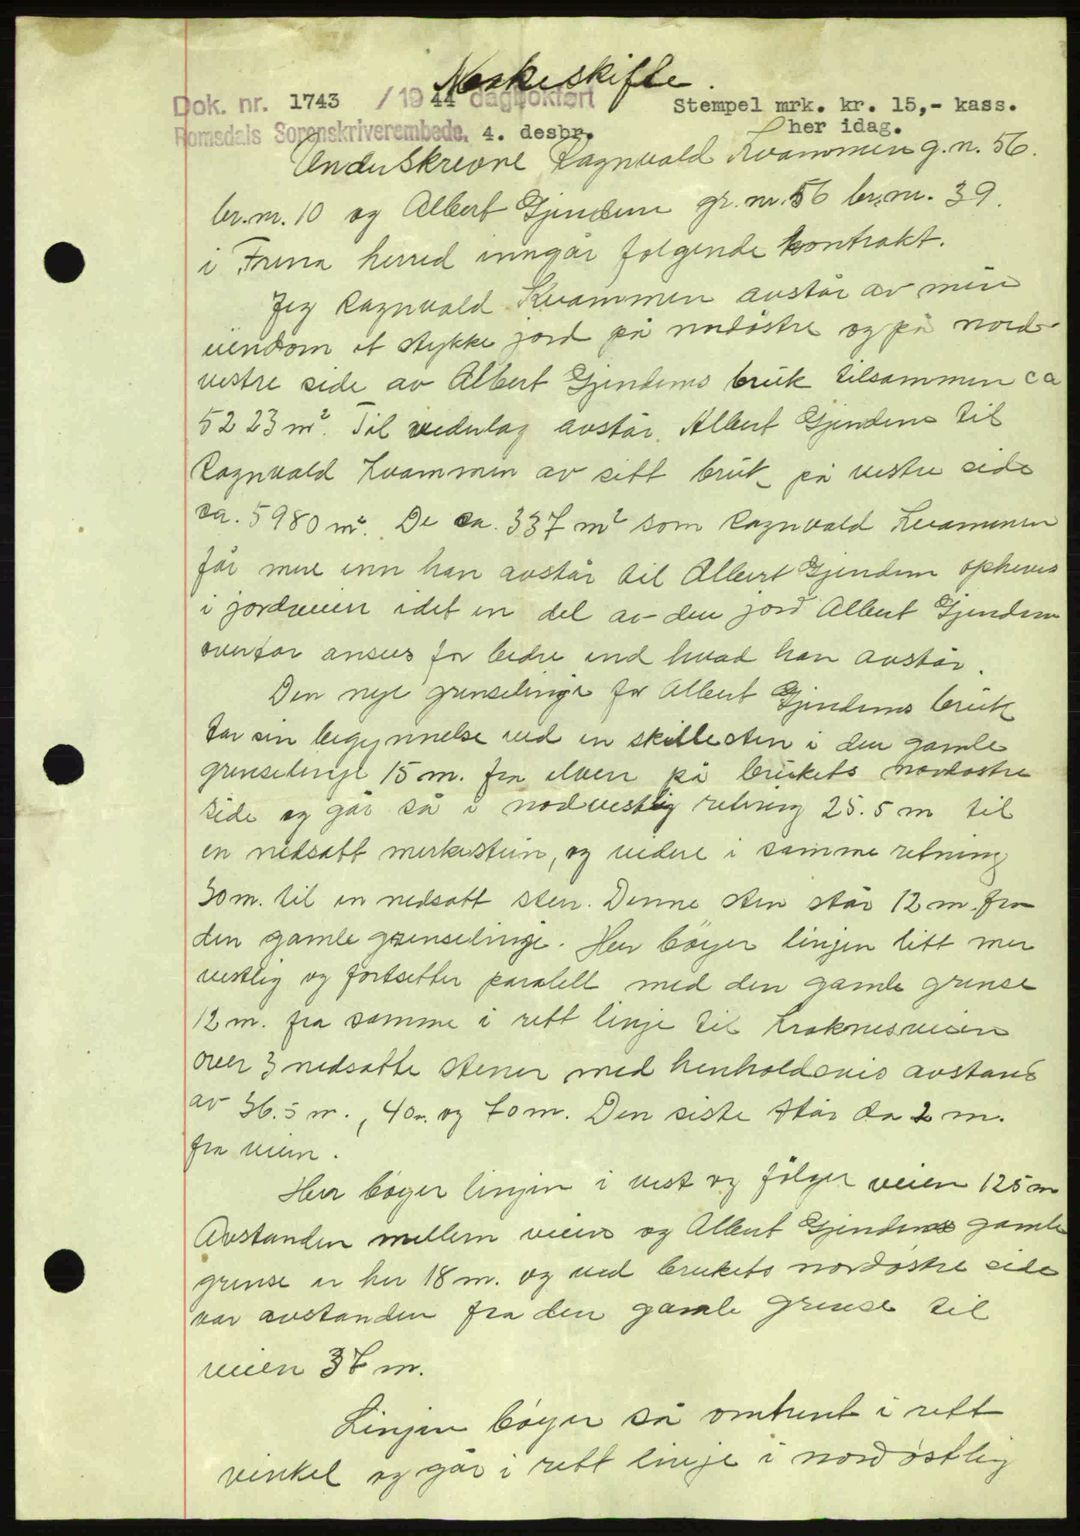 Makeskifte.
Dok. nr. 1743 / 1944 dagbokført
Stempel mrk. kr. 15,- kass.
her idag.
Romsdals Sorenskriverembede, 4. desbr.
Underskrevne Ragnvald Kvammen g.n. 56.
br.nr. 10 og Albert Gjendem gr. nr. 56 br.nr. 39.
i Fræna herred inngår følgende kontrakt.
Jeg Ragnvald Kvammen avstår av min
eiendom et stykke jord på nordöstre og på nord-
vestre side av Albert Gjendems bruk tilsammen ca
5223 m². Til vederlag avstår Albert Gjendem til
Ragnvald Kvammen av sitt bruk på vestre side
ca. 5980 m². De ca. 337 m² som Ragnvald Kvammen
får mere enn han avstår til Albert Gjendem opheves
i jordveien idet en del av den jord Albert Gjendem
overtar ansees for bedre end hvad han avstår.
Den nye grenselinje for Albert Gjendems bruk
tar sin begynnelse ved en skillesten i den gamle
grenselinje 15 m. fra elven på brukets nordostre
side og går så i nordvestlig retning 25.5 m til
en nedsatt merkestein, og videre i samme retning
30 m. til en nedsatt sten. Denne sten står 12 m. fra
den gamle grenselinje. Her böyer linjen litt mer
vestlig og fortsetter paralell med den gamle grense
12 m. fra samme i rett linje til Kraknesveien
over 3 nedsatte stener med henholdsvis avstand
av 36.5 m., 40 m. og 70 m. Den siste står da 2 m.
fra veien.
Her böyer linjen i vest og fölger veien 125 m
Avstanden mellem veien og Albert Gjendems gamle
grense er her 18 m. og ved brukets nordöstre side
var avstanden fra den gamle grense til
veien 37 m.
Linjen böyer så omtrent i rett
vinkel og går i rett linje i nordöstlig